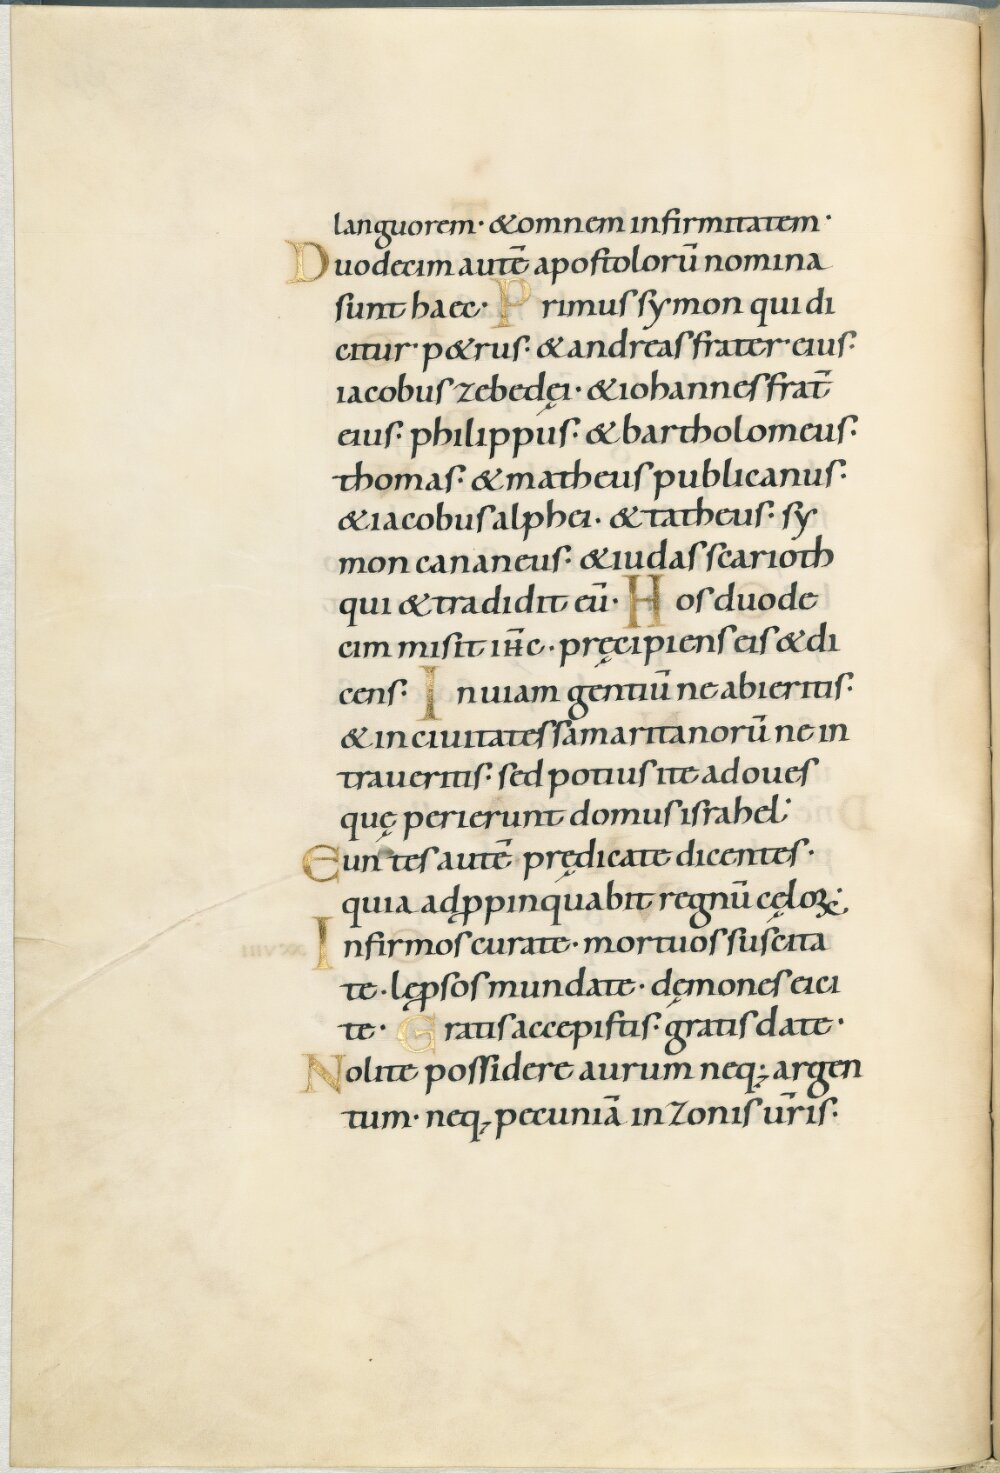 languorem· &omnem infirmitatem·
Duodecim autē apostolorū nomina
sunt haec· Primus symon qui di
citur· p&rus· & andreas frater· eius·
iacobus zebedęi· & iohannes frat̄
eius· philippus· & bartholomeus·
thomas· & matheus publicanus·
& iacobus alphei· & tatheus· sy
mon cananeus· & iudas scarioth
qui & tradidit eū· Hos duode
cim misit ih̄c· pręcipiens eis & di
cens· In uiam gentiū ne abieritis·
& in ciuitates samaritanorū ne in
traueritis· sed potius ite ad oues
quę perierunt domus israhel;
Euntes autē prędicate dicentes·
quia adꝓpinquabit regnū cęloꝝ;
Infirmos curate· mortuos suscita
te· lęꝓsos mundate· dęmones eici
te· Gratis accepistis· gratis date·
Nolite possidere aurum neq; argen
tum· neq; pecuniā in zonis ur̄is·